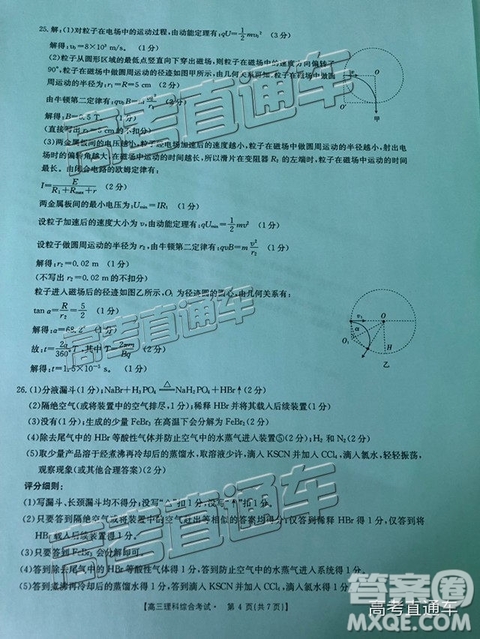 25.解:(1)对粒子在电场中的运动过程,由动能定理有:qU=1/2mv₁² (3分)
解得:v₁=8×10³ m/s。(1分)
(2)粒子从圆形区域的最低点竖直向下穿出磁场,则粒子在磁场中的速度方向偏转了
90°,粒子在磁场中做圆周运动的轨迹如图甲所示,由几何关系
周运动的半径为:r₁=R=5 cm (2分)
由牛顿第二定律有:qv₁B=m (2分)
解得:B= T。(2分)
(直接写出 cm的不扣分)
(3)两金属板间的电压越小,粒子经加速后的速度越小,粒子在磁场中做圆周运动的半径越小,射出电
场时的偏转角越大,在磁场中的运动时间越长,所以滑片在变阻器R₁的左端时,粒子在磁场中的时间
最长。由闭合电路的欧姆定律有:
I=E/(R₁+Rmax+r) (2分)
两金属板间的最小电压为:Umin=IR₁ (1分)
设粒子加速后的速度大小为v,由动能定理有:qUmin=1/2mv² (1分)
设粒子做圆周运动的半径为r₂,由牛顿第二定律有:qvB=m v²/r₂ (2分)
解得:r₂=0.02 m (1分)
(不写出r₂=0.02 m的不扣分)
粒子进入磁场后的径迹如图乙所示,O₁为径迹圆的圆心,由几何关系有:
tan α=R/r₂=5/2
解得:α=68. (1分)
故:t=2α/360°T,其中T=2πm/Bq (2分)
解得:t= ×10⁻⁵ s。(1分)
v₁
O
H
甲
v₁
H
O
O₁
乙
26.(1)分液漏斗(1分);NaBr+H₃PO₄ △ NaH₂PO₄+HBr↑(2分)
(2)隔绝空气(或将装置中的空气排尽,1分);稀释HBr并将其载入后续装置(1分)
(3)没有(1分);生成的少量FeBr₃在高温下会分解为FeBr₂(2分)
(4)除去尾气中的HBr等酸性气体并防止空气中的水蒸气进入装置⑤(2分);H₂和N₂(2分)
(5)取少量产物溶于经煮沸再冷却后的蒸馏水,取溶液少许,滴入KSCN并加入CCl₄,滴入氯水,轻轻振荡,
观察现象(或其他合理答案)(2分)
评分细则:
(1)写漏斗、长颈漏斗均不得分;没写“△”扣1分,没写“↑”扣1分。
(2)只要答到隔绝空气或将装置中的空气赶出等相似的答案均得分;仅答到稀释HBr得1分,仅答到将
HBr载入后续装置得1分。
(3)只要答到FeBr₃会分解即可得分。
(4)只要答到除去尾气中的HBr等酸性气体得1分,仅答到防止空气中的水蒸气进入得1分。
(5)答到煮沸再冷却后的蒸馏水得1分,答到滴入KSCN并加入CCl₄,滴入氯水得1分。
【高三理科综合考试· 第 4 页(共7页)】
高考直通车
高考直通车
高考直通车
高考直通车
答案圈